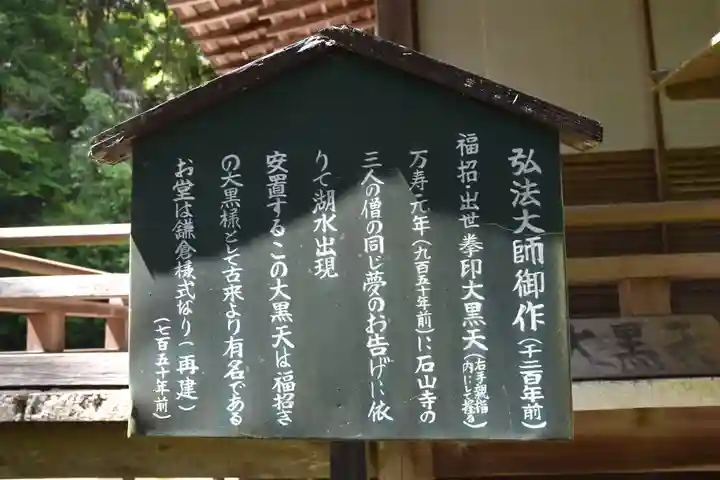 弘法大師御作（千二百年前）
福招・出世拳印大黒天（右手親指内にして握る）
万寿・元年（九百五十年前）に石山寺の
三人の僧の同じ夢のお告げに依
りて湖水出現
安置するこの大黒天は福招き
の大黒様として古来より有名である
お堂は鎌倉様式なり（再建）
（七百五十年前）
大黒天